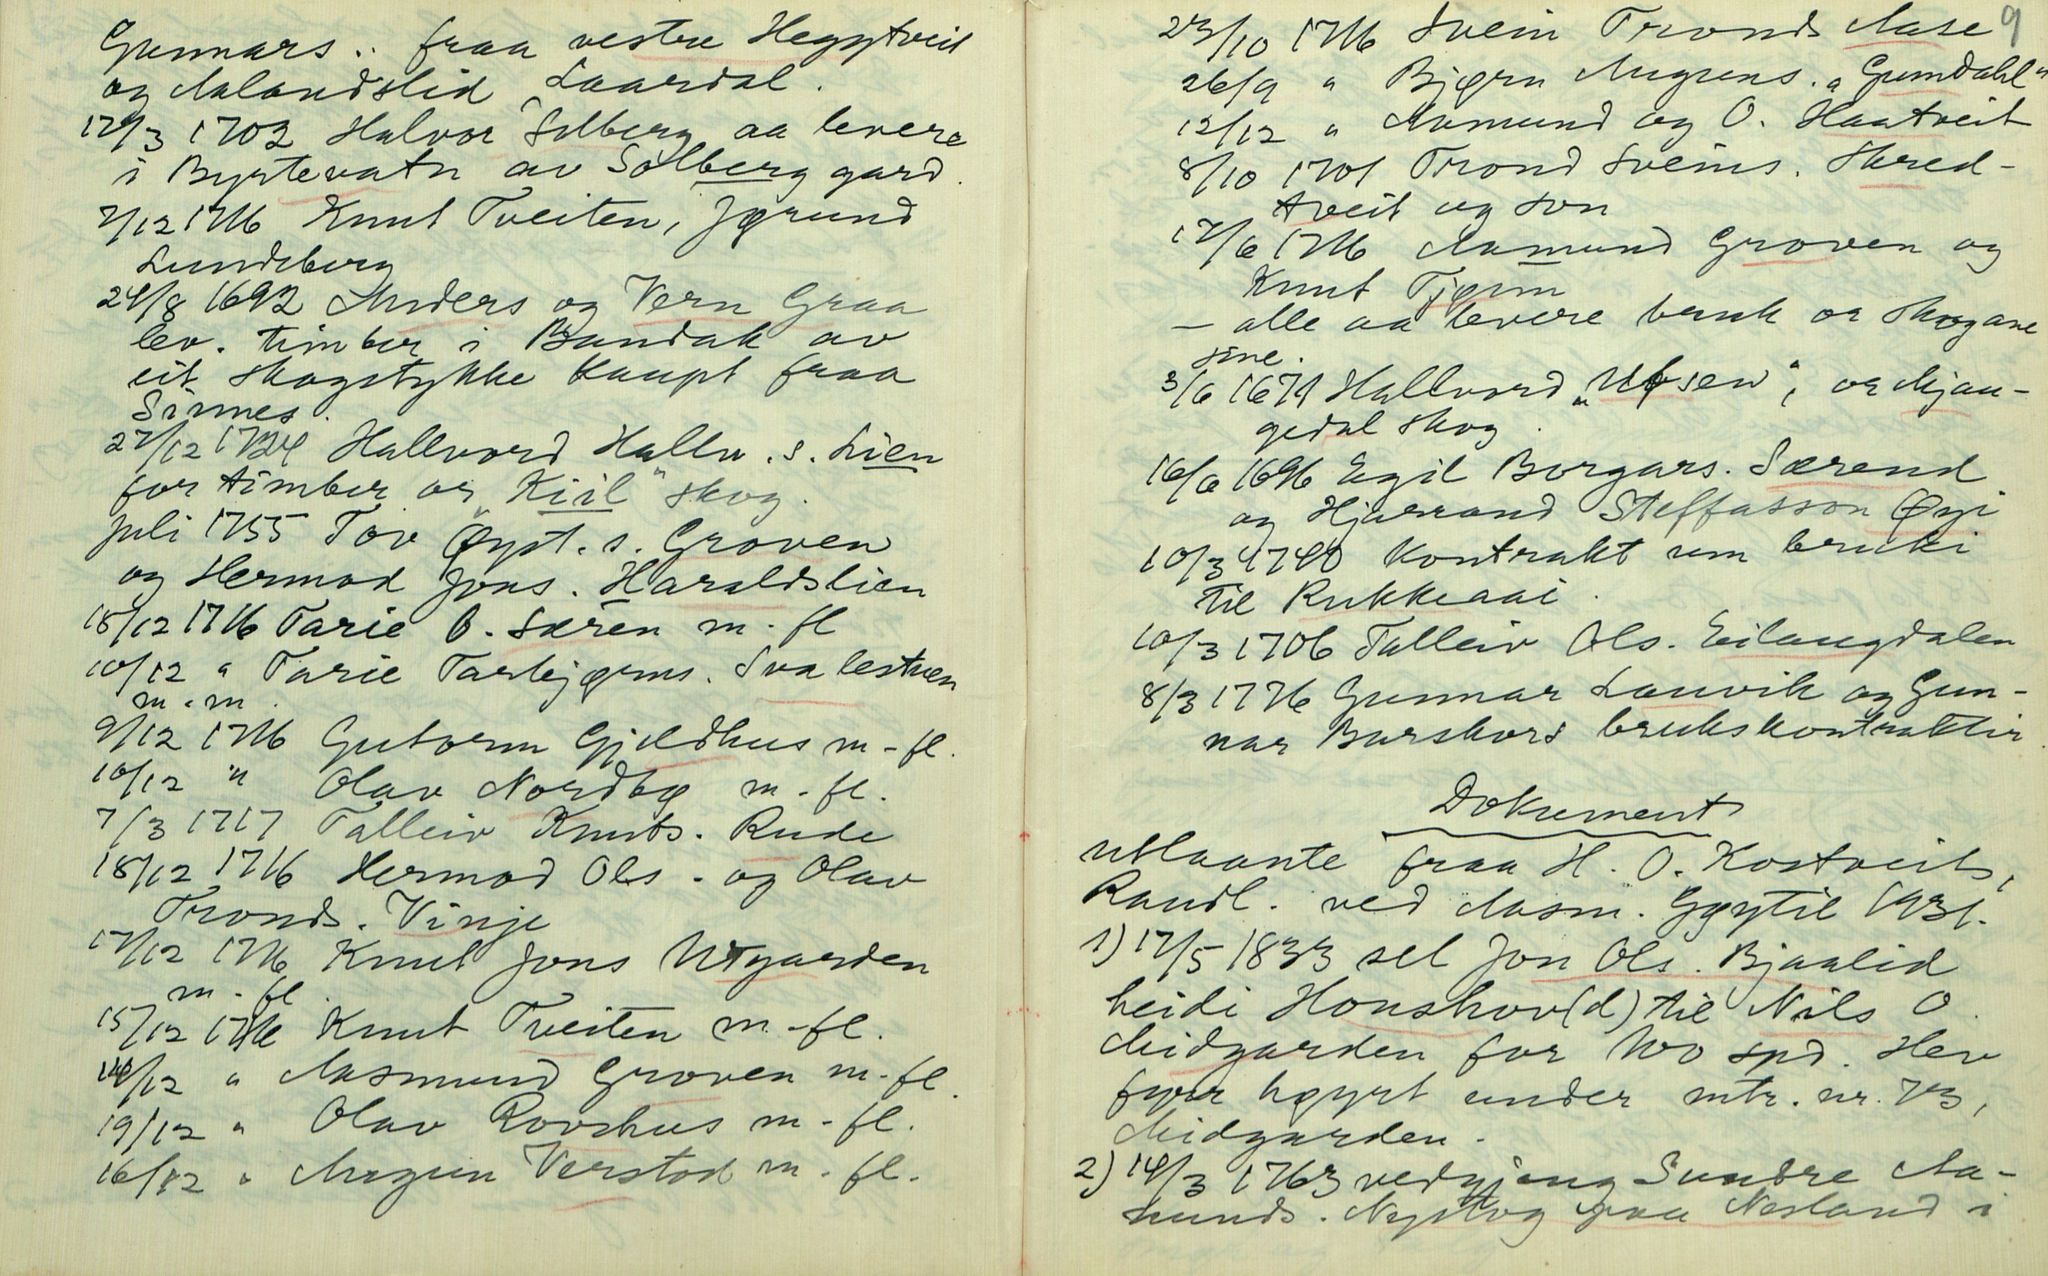 Gunnars. fraa vestre Heggtveit
og Aalandslid, Laardal.
17/3 1702 Halvor Solberg aa levere
i Byrtevatn av Solberg gard.
7/12 1716 Knut Tveiten, Jørund
Lundeberg
24/8 1692 Anders og Vern Graa
lev. timber i Bandak av
eit skogstykke kaupt fraa
Sinnes.
27/12 1724 Hallvord Hallv. s. Lien
for timber or "Kiil" skog.
Juli 1755 Tov Øyst. s. Groven
og Hermod Jons. Haraldslien
18/12 1716 Tarie O. Særen m. fl
10/12 " Tarie Tarbjørns. Svalestuen
m. m.
9/12 1716 Gutorm Gjeldhus m. fl.
10/12 " Olav Nordbø m. fl.
7/3 1717 Talleiv Knuts. Rude
18/12 1716 Hermod Ols. og Olav
Tronds. Vinje
17/12 1716 Knut Jons Utgarden
m. fl.
15/12 1716 Knut Tveiten m. fl.
14/12 " Aasmund Groven m. fl.
19/12 " Olav Rovshus m. fl.
16/12 " Augun Verstad m. fl.
9
23/10 1716 Svein Tronds Aase
26/9 " Bjørn Auguns. "Gumdahl"
12/12 " Aamund og O. Haatveit
8/10 1701 Trond Sveins. Skred-
tveit og son
17/6 1716 Aamund Groven og
Knut Tjønn
- alle aa levere bruk or skogane
sine.
3/6 1671 Hallvord "Ufsen", or Mjau-
gedal skog.
16/6 1696 Egil Borgars. Særend
og Hjarrand Steffasson Øyi
10/3 1740 Kontrakt um bruki
til Rukkeaai.
10/3 1706 Talleiv Ols. Eilaugdalen
8/3 1776 Gunnar Lauvik og Gun-
nar Barskors brukskontraktir
Dokument
utlaante fraa H. O. Kostveit,
Raudl. ved Aasm. Gøytil 1931.
1) 17/5 1833 sel Jon Ols. Bjaalid
heidi Honshov(d) til Nils O.
Midgarden for 100 spd. Hev
fyrr høyrt under mtr. nr. 73,
Midgarden.
2) 14/3 1763 vedgjeng Sundre Aa-
munds. Nystog paa Nesland i